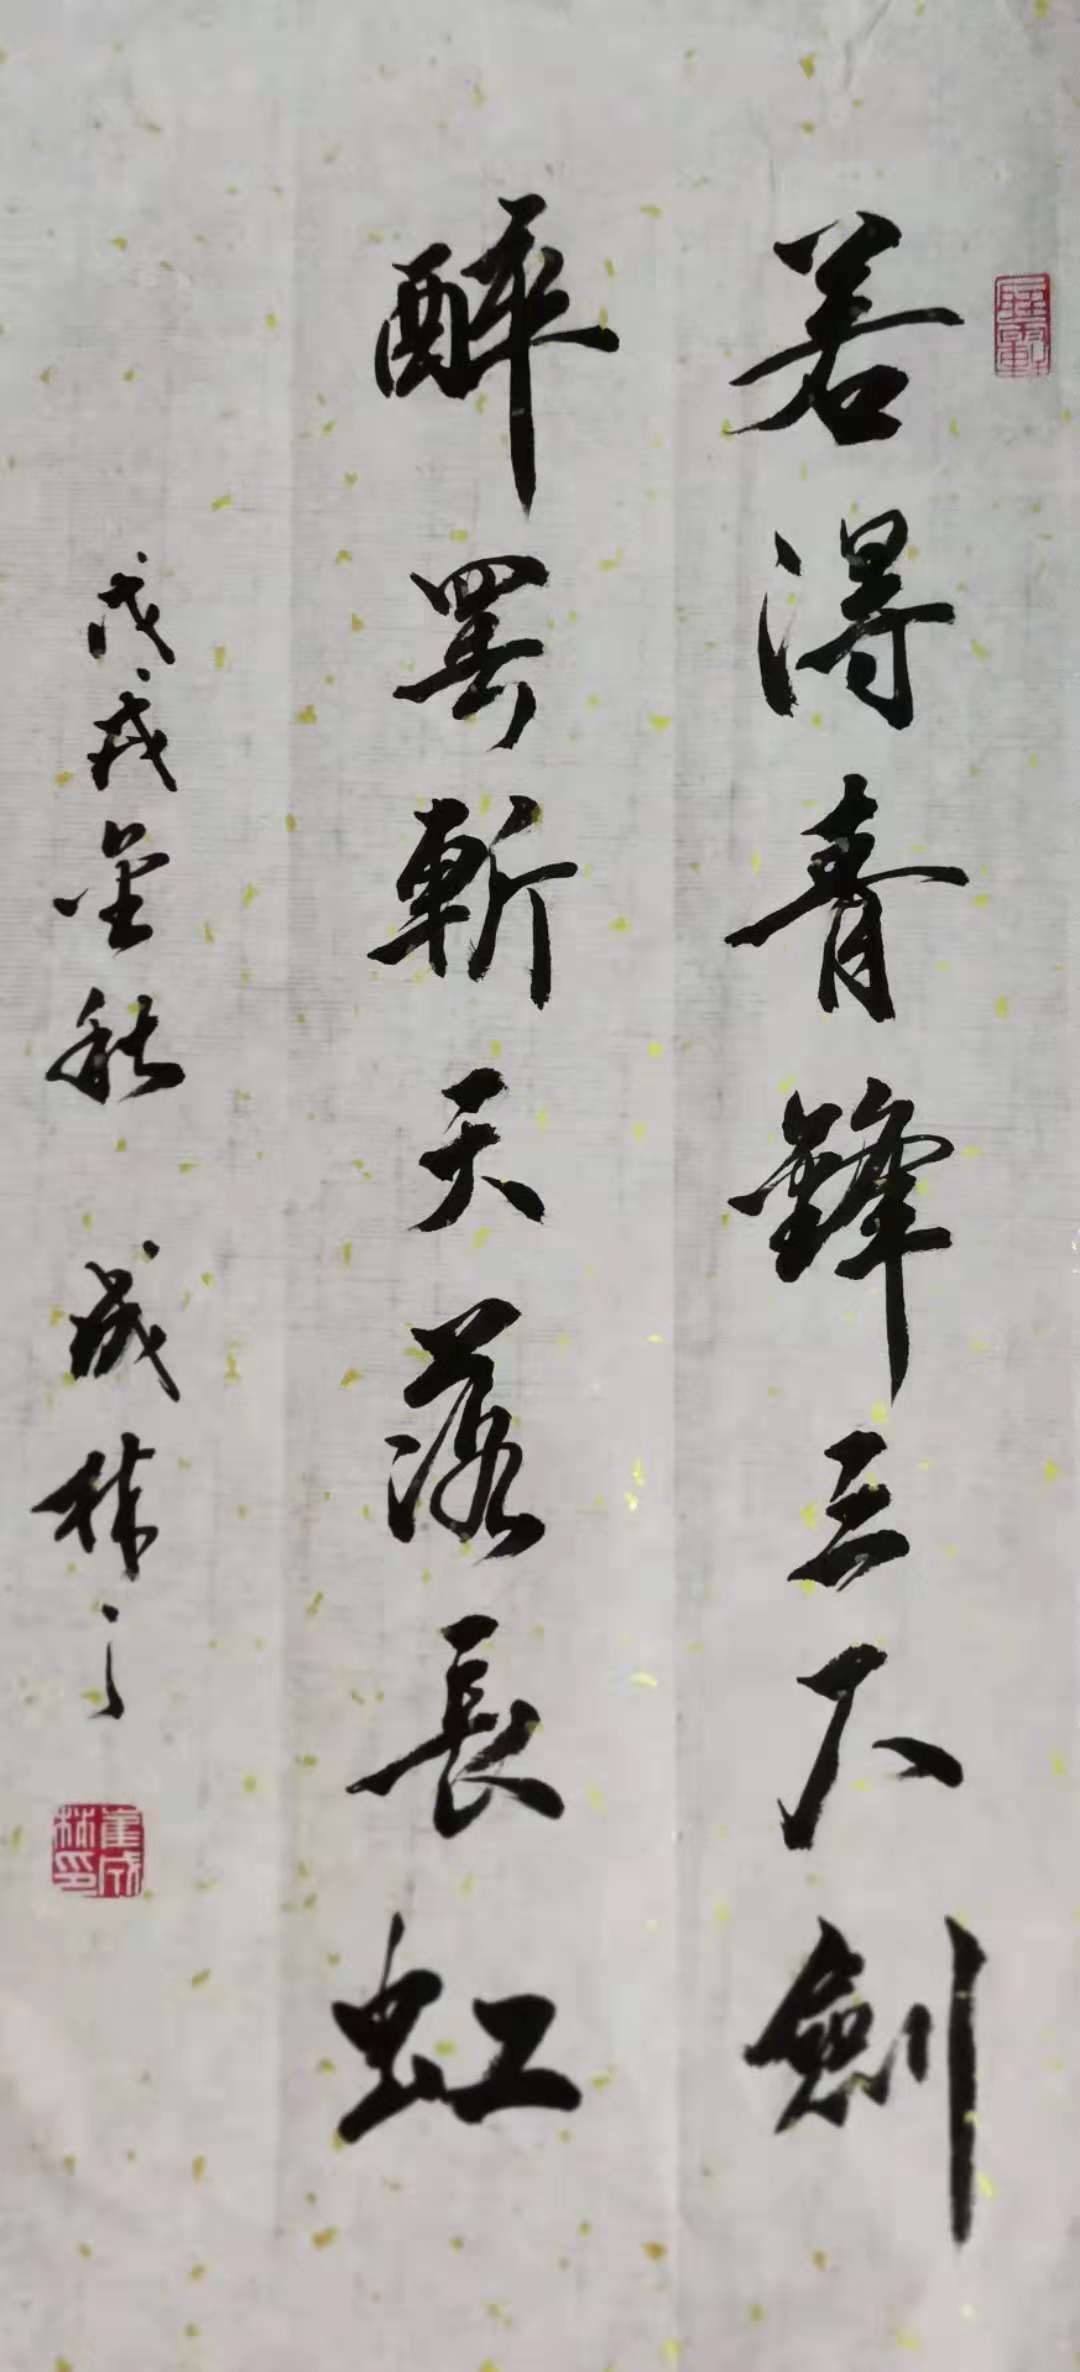 若得青鋒三尺劍
醉罢斬天落長虹
戊戌金秋 成林书
崔成林印